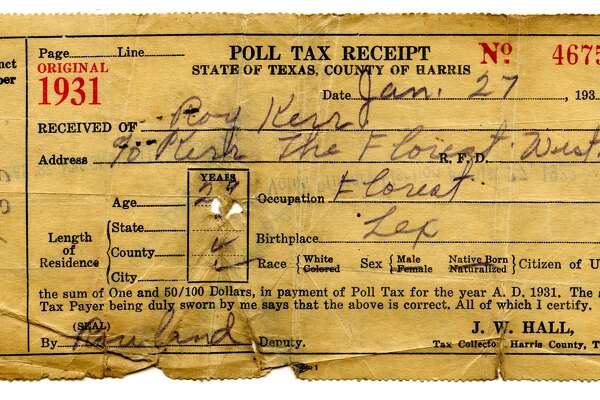 Page Line POLL TAX RECEIPT No 4675
nct ORIGINAL STATE OF TEXAS, COUNTY OF HARRIS
ber 1931 Date Jan. 27 193
RECEIVED OF Roy Kerr
Address c/o Kerr The Florist R. F. D. West
YEARS
Age 29 Occupation Florist
State
Length of Residence County Birthplace Tex
City Race White Colored Sex Male Female Native Born Naturalized Citizen of U
the sum of One and 50/100 Dollars, in payment of Poll Tax for the year A. D. 1931. The s
Tax Payer being duly sworn by me says that the above is correct. All of which I certify.
(SEAL) J. W. HALL,
By Deputy. Tax Collector Harris County, T